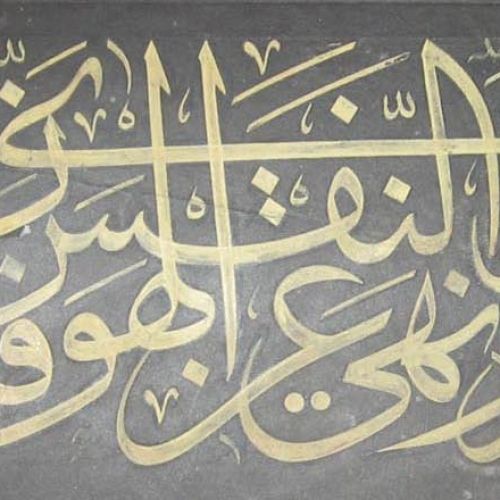 ونهى النفس عن الهوى